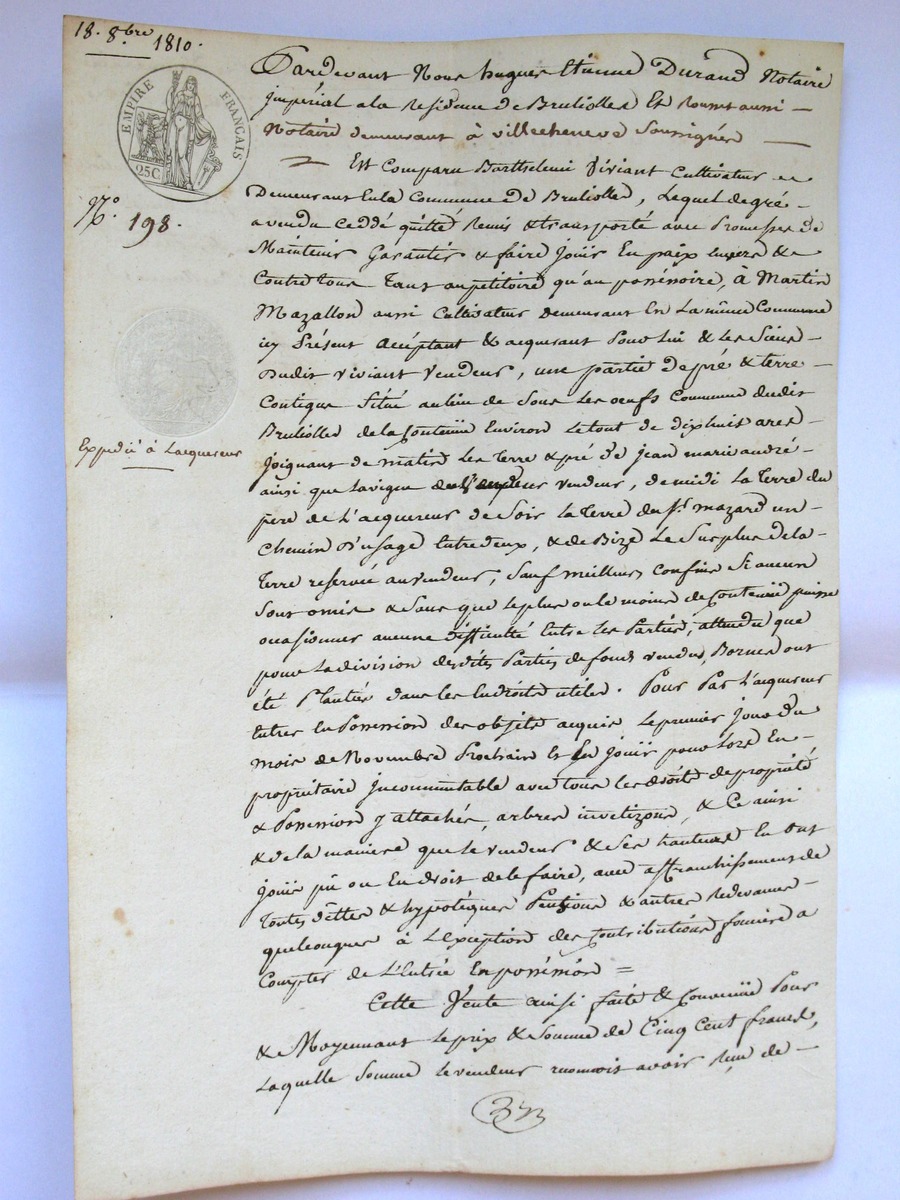 18. 8.bre 1810.
EMPIRE FRANÇAIS
25C
N.o 198.
Expédié à Lacquereur
Pardevant Nous hugues Etienne Durand Notaire
Imperial a la Residence de Brullioles Et Rousset aussi —
Notaire demeurant à villechenève Soussignés —
= Est Comparu Barthelemi Viviant Cultivateur
Demeurant En la Commune de Brullioles, Lequel de gré
a vendu Ceddé quitté Remis & transporté avec Promesse de
Maintenir Garantir & faire Jouir En paix Envers &
Contre tous tant au petitoire qu'au possessoire, à Martin
Mazallon aussi Cultivateur demeurant En La même Commune
icy Présent Acceptant & acquerant Pour lui & Les Siens —
Dudit viviant Vendeur, une partie de pré & terre —
Contigue Situé au lieu de Sous Les oeufs Commune dudit
Brullioles de la Contenüe Environ Le tout de dixhuit ares —
Joignant de matin Les terre & pré de jean marie andré —
ainsi que la vigne du vendeur, de midi La Terre du
père de L'acquereur de Soir la Terre du Sr. mazard un —
Chemin d'usage Entre deux, & de Bize Le Surplus de la —
Terre reservée au vendeur, Sauf meilleurs confins Si aucun
Sont omis & Sans que le plus ou le moins de Contenüe puisse
occasionner aucune difficulté Entre les Parties, attendu que
pour la division desdites Parties de fonds vendus, Bornes ont
été Plantées dans les Endroits utiles. Pour Par L'acquereur
Entrer En Possession des objets acquis Le premier Jour du
mois de Novembre Prochain Et En Jouir pour Lors En —
propriétaire Incommutable avec tous les droits de propriété
& Possession y attachés, arbres & Ce ainsi
& de la maniere que le vendeur & Ses hauteurs En ont
Joüis pû ou En droit de le faire, avec affranchissement de
Toutes dettes & hypotèques Pensions & autres Redevances —
quelconques à L'Exception des Contributions foncière a
Compter de L'Entrée En possession =
Cette Vente ainsi faite & Convenüe Pour
& Moyennant Le prix & Somme de Cinq Cent francs,
Laquelle Somme Le vendeur reconnoit avoir Reçu de —